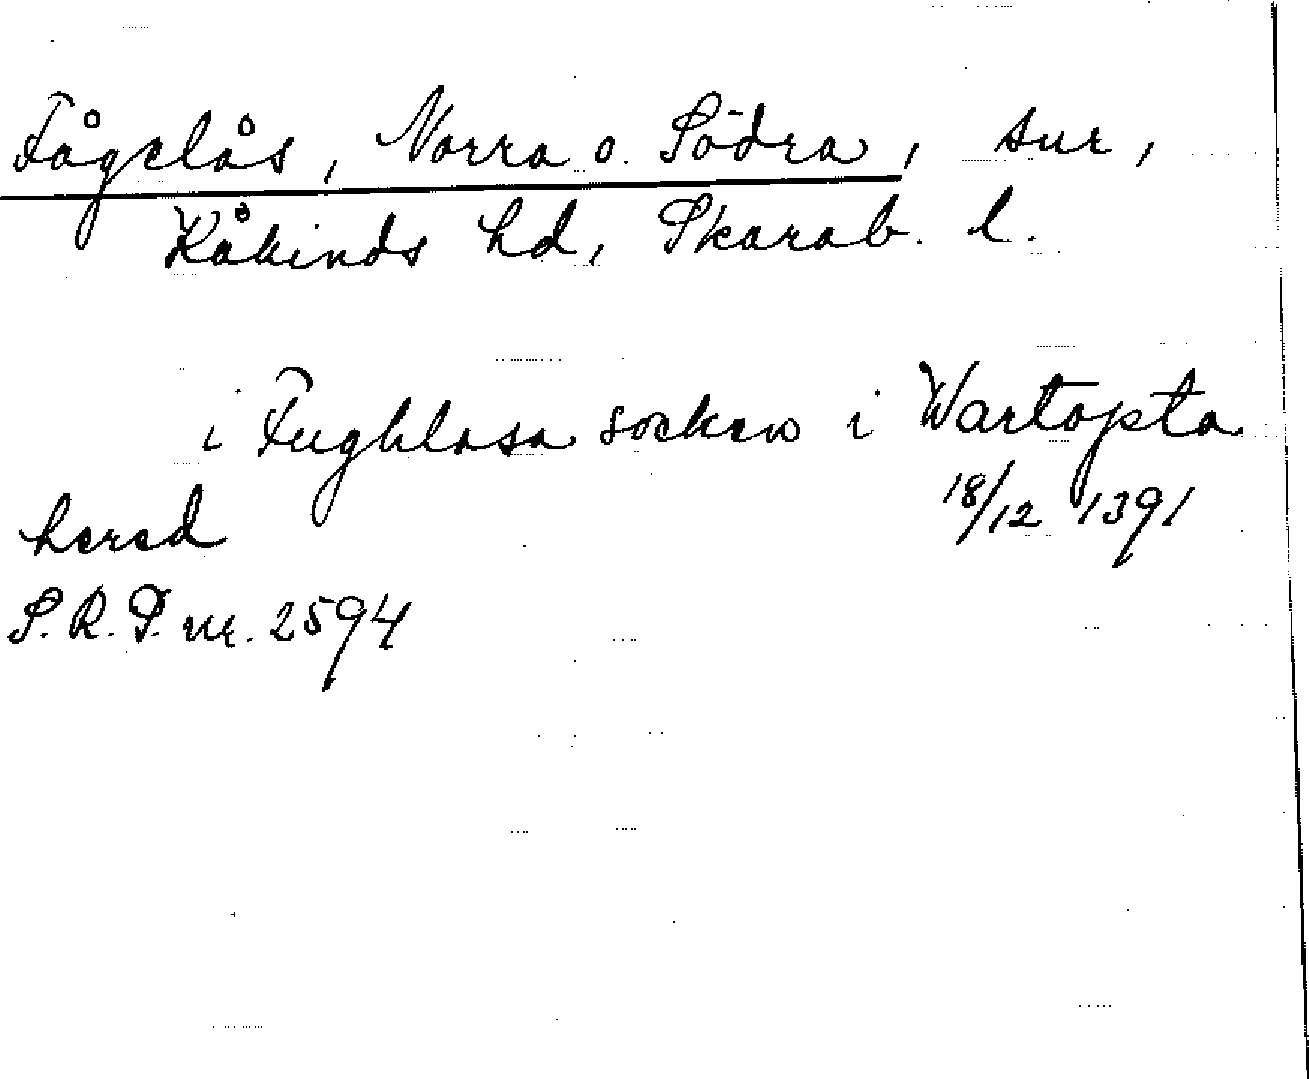 Fågelås, Norra o. Södra, snr,
Kåkinds hd, Skarab. l.
i Fughlasa socken i Wartopta
hered 18/12 1391
S.R.P. nr. 2594